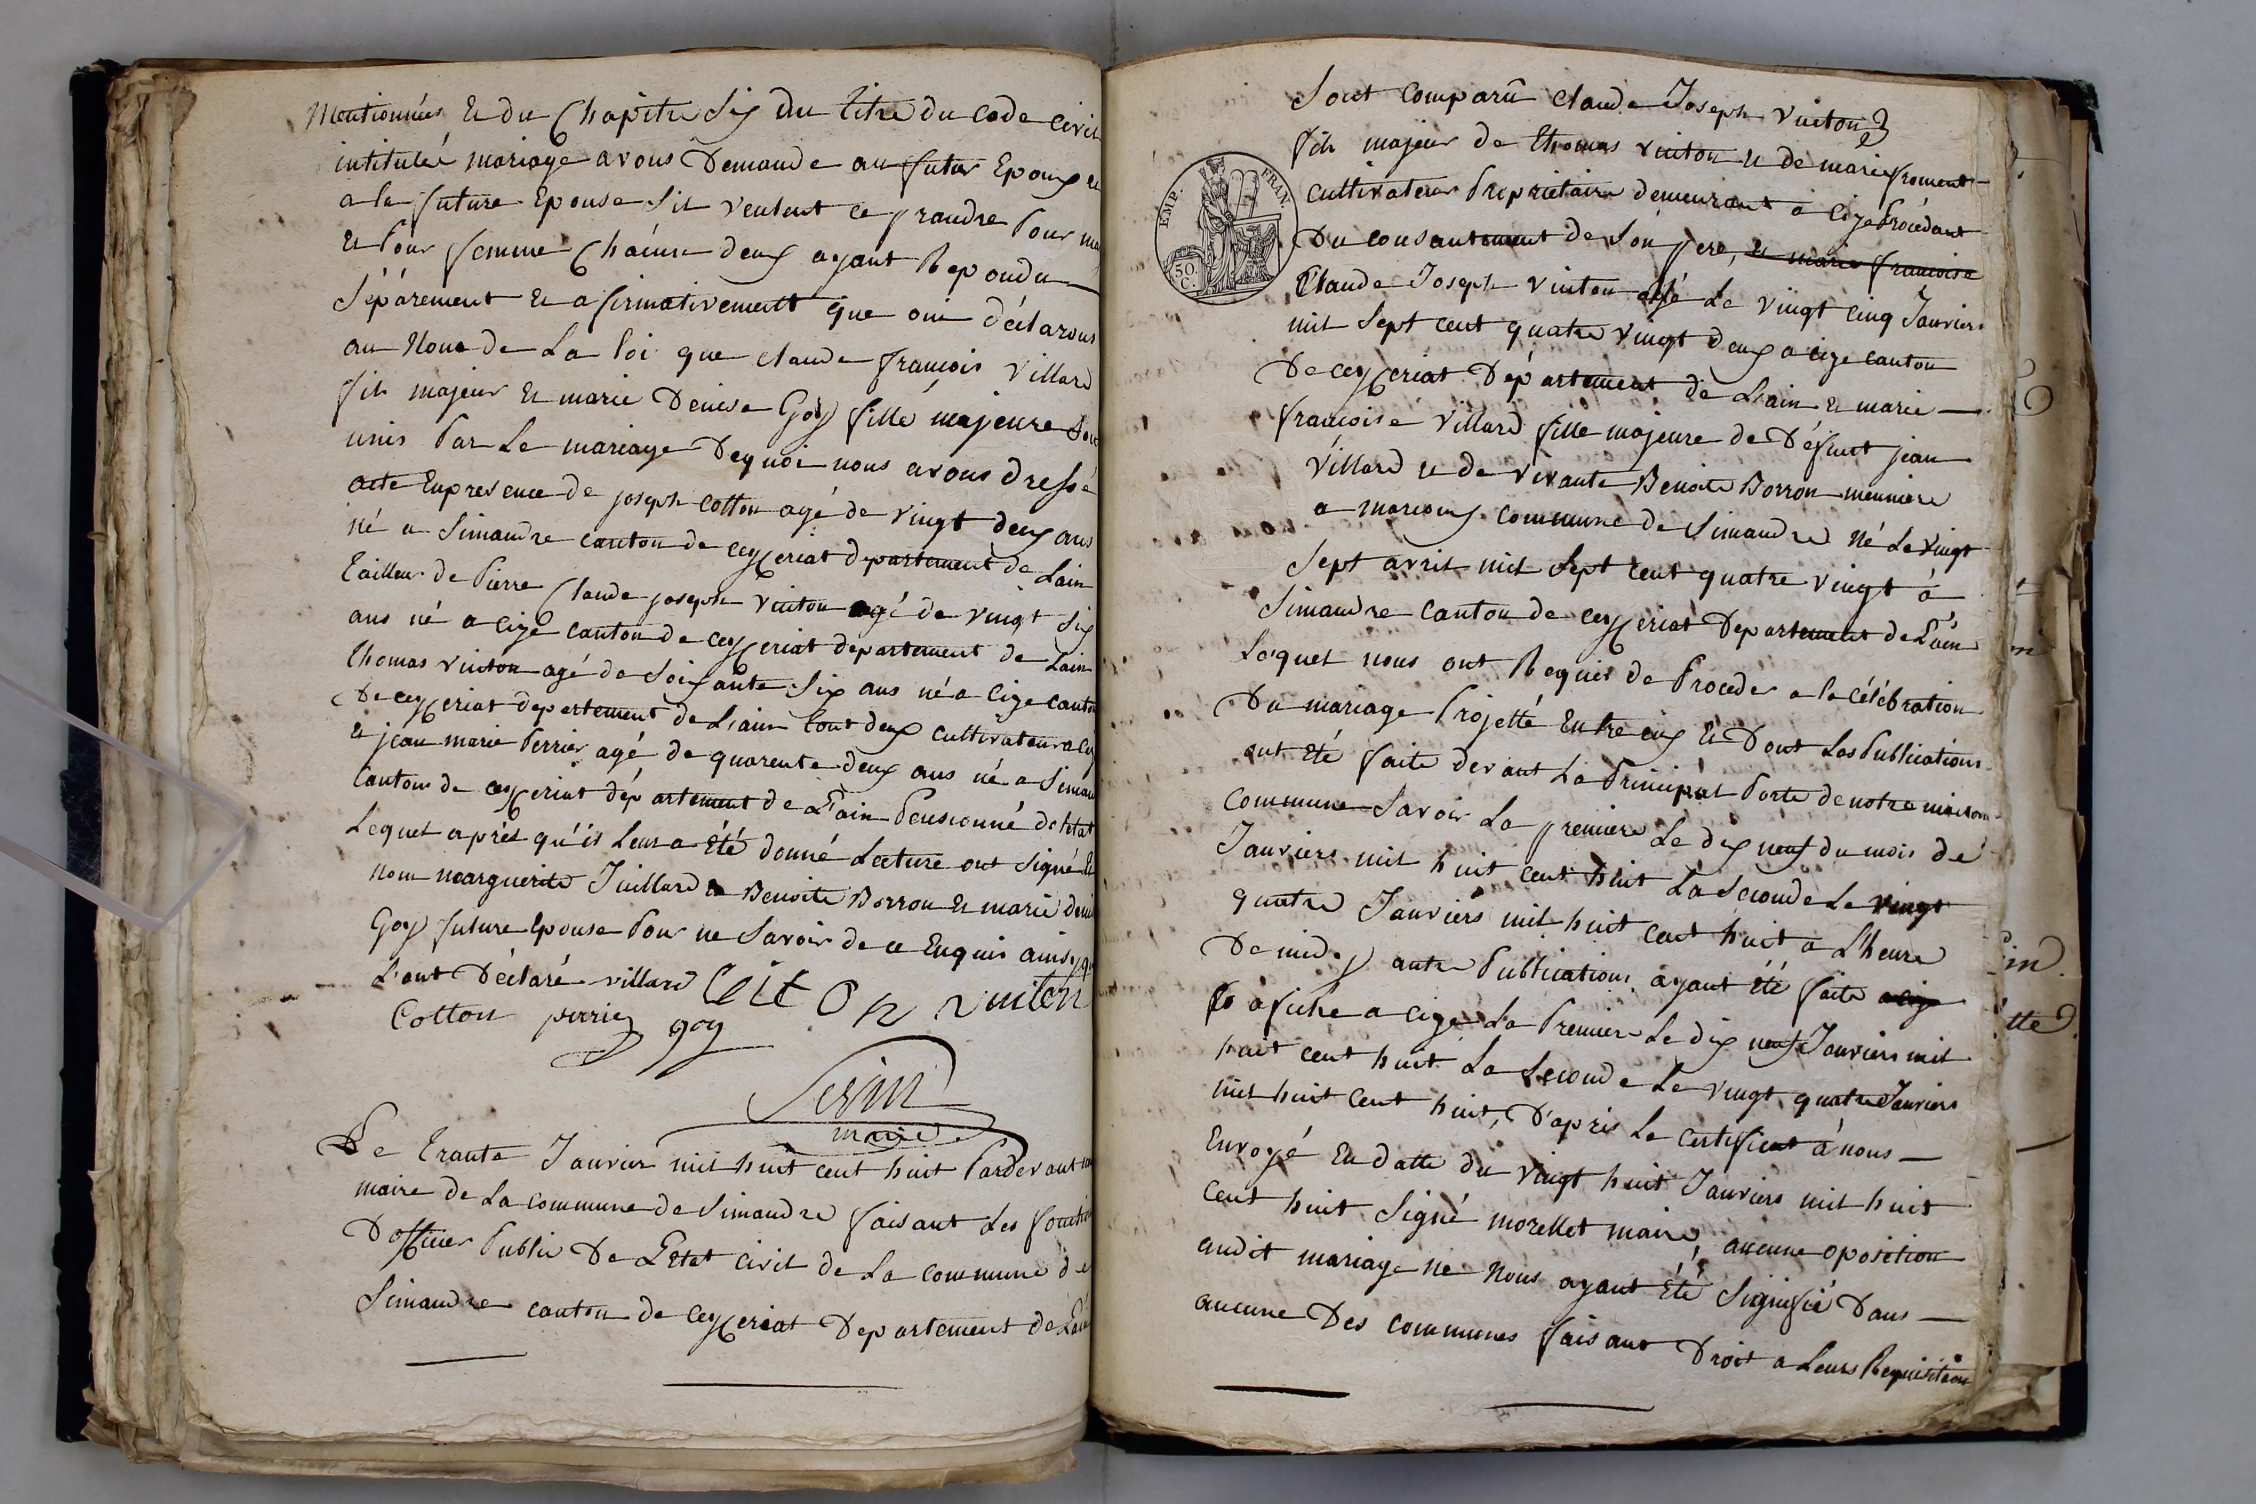 Mentionnées et du Chapitre six du titre du code civil
intitulée mariage avons Demande au futur Epoux et
a la future Epouse sil veulent ce prandre Pour
Et Pour femme Chacun deux ayant Repondu
séparement et afirmativement que oui déclarons
au Nom de La loi que claude françois Villard
fils majeur et marie Denise Goy fille majeure sont
unis Par Le mariage Dequoi nous avons dressé
acte Enpresence de joseph Cotton agé de vingt deux ans
né a Simandre canton de ceyzeriat departement de Lain
tailleur de Pierre Claude joseph vuiton agé de vingt six
ans né a cizé canton de ceyzeriat departement de Lain
thomas vuiton agé de soixante six ans né a cize canton
De ceyzeriat departement de L'ain tout deux cultivateur a
et jean marie Perrier agé de quarente deux ans né a
Canton de ceyzeriat département de L'ain Pensionné de letat
Lequel aprés qu'il Leur a été donné Lecture ont signé Et
Non marguerite Juillard et Benoite Borron et marie
Goy future Epouse Pour ne savoir de ce Enquis ainsy
L'ont Déclaré villard vuiton
Cotton perrier goy
Serin
maire
Le trante Janvier mil huit cent huit Pardevant
maire de La commune de Simandre faisant Les
D'officier Public De L'Etat civil de La commune de
Simandre canton de Ceyzeriat Departement de
Sont Comparû claude Joseph vuiton
fils majeur de thomas vuiton et de marie froment
cultivateur Propriétaire demeurant a cize Procédant
Du consantement de son pere, et marie françoise
EMP. FRAN.
50.
C.
Claude Joseph vuiton né Le vingt cinq Janviers
mil sept cent quatre vingt deux a cize canton
De ceyzeriat Département de L'ain et marie
françoise Villard fille majeure de Défunt jean
Villard et de vivante Benoite Borron meuniere
a commune de Simandre Né Le vingt
sept avril mil sept cent quatre vingt à
Simandre canton de ceyzeriat Departement de L'ain
Lequel nous ont Requis de Proceder a la célébration
Du mariage Projetté Entre eux Et Dont Les Publications
ont Eté faite devant La Principal Porte de notre maison
commune Savoir La premiere Le dix neuf du mois de
Janviers mil huit cent huit La seconde Le vingt
quatre Janviers mil huit cent huit a L'heure
De midy autre Publications ayant été faite a cize
afiché a cize La Premier Le dix neuf Janviers mil
huit cent huit La seconde Le vingt quatre Janviers
mil huit cent huit, D'apris Le certificat à nous
Envoyé En datte du vingt huit Janviers mil huit
cent huit signé morellet maire, aucune oposition
audit mariage ne Nous ayant Eté signifié Dans
aucune Des communes faisant Droit a Leurs Requisition